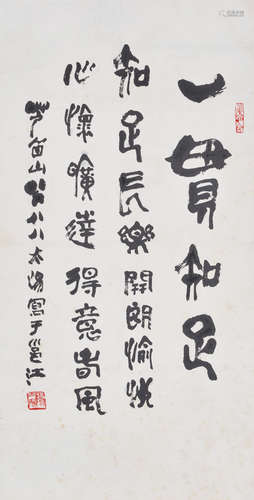 一貫知足
知足長樂開朗愉快
心懷曠達得意春風
芦笛山翁八八太陽寫于邕江